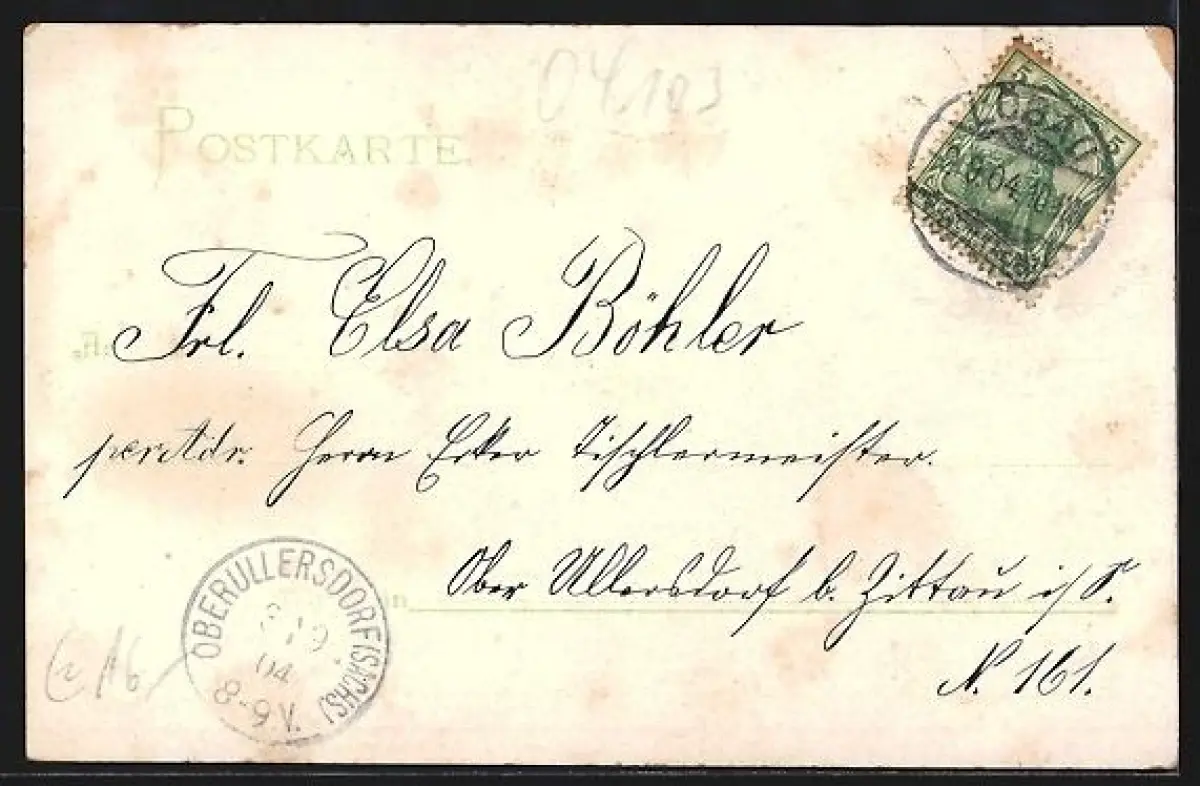 04.103
POSTKARTE
5 5
LÖBAU
Frl. Elsa Böhler
per Adr. Herrn Ecker Tischlermeister.
Ober Ullersdorf b. Zittau i/S.
N. 161.
OBERULLERSDORF (SACHS)
04
8-9 V.